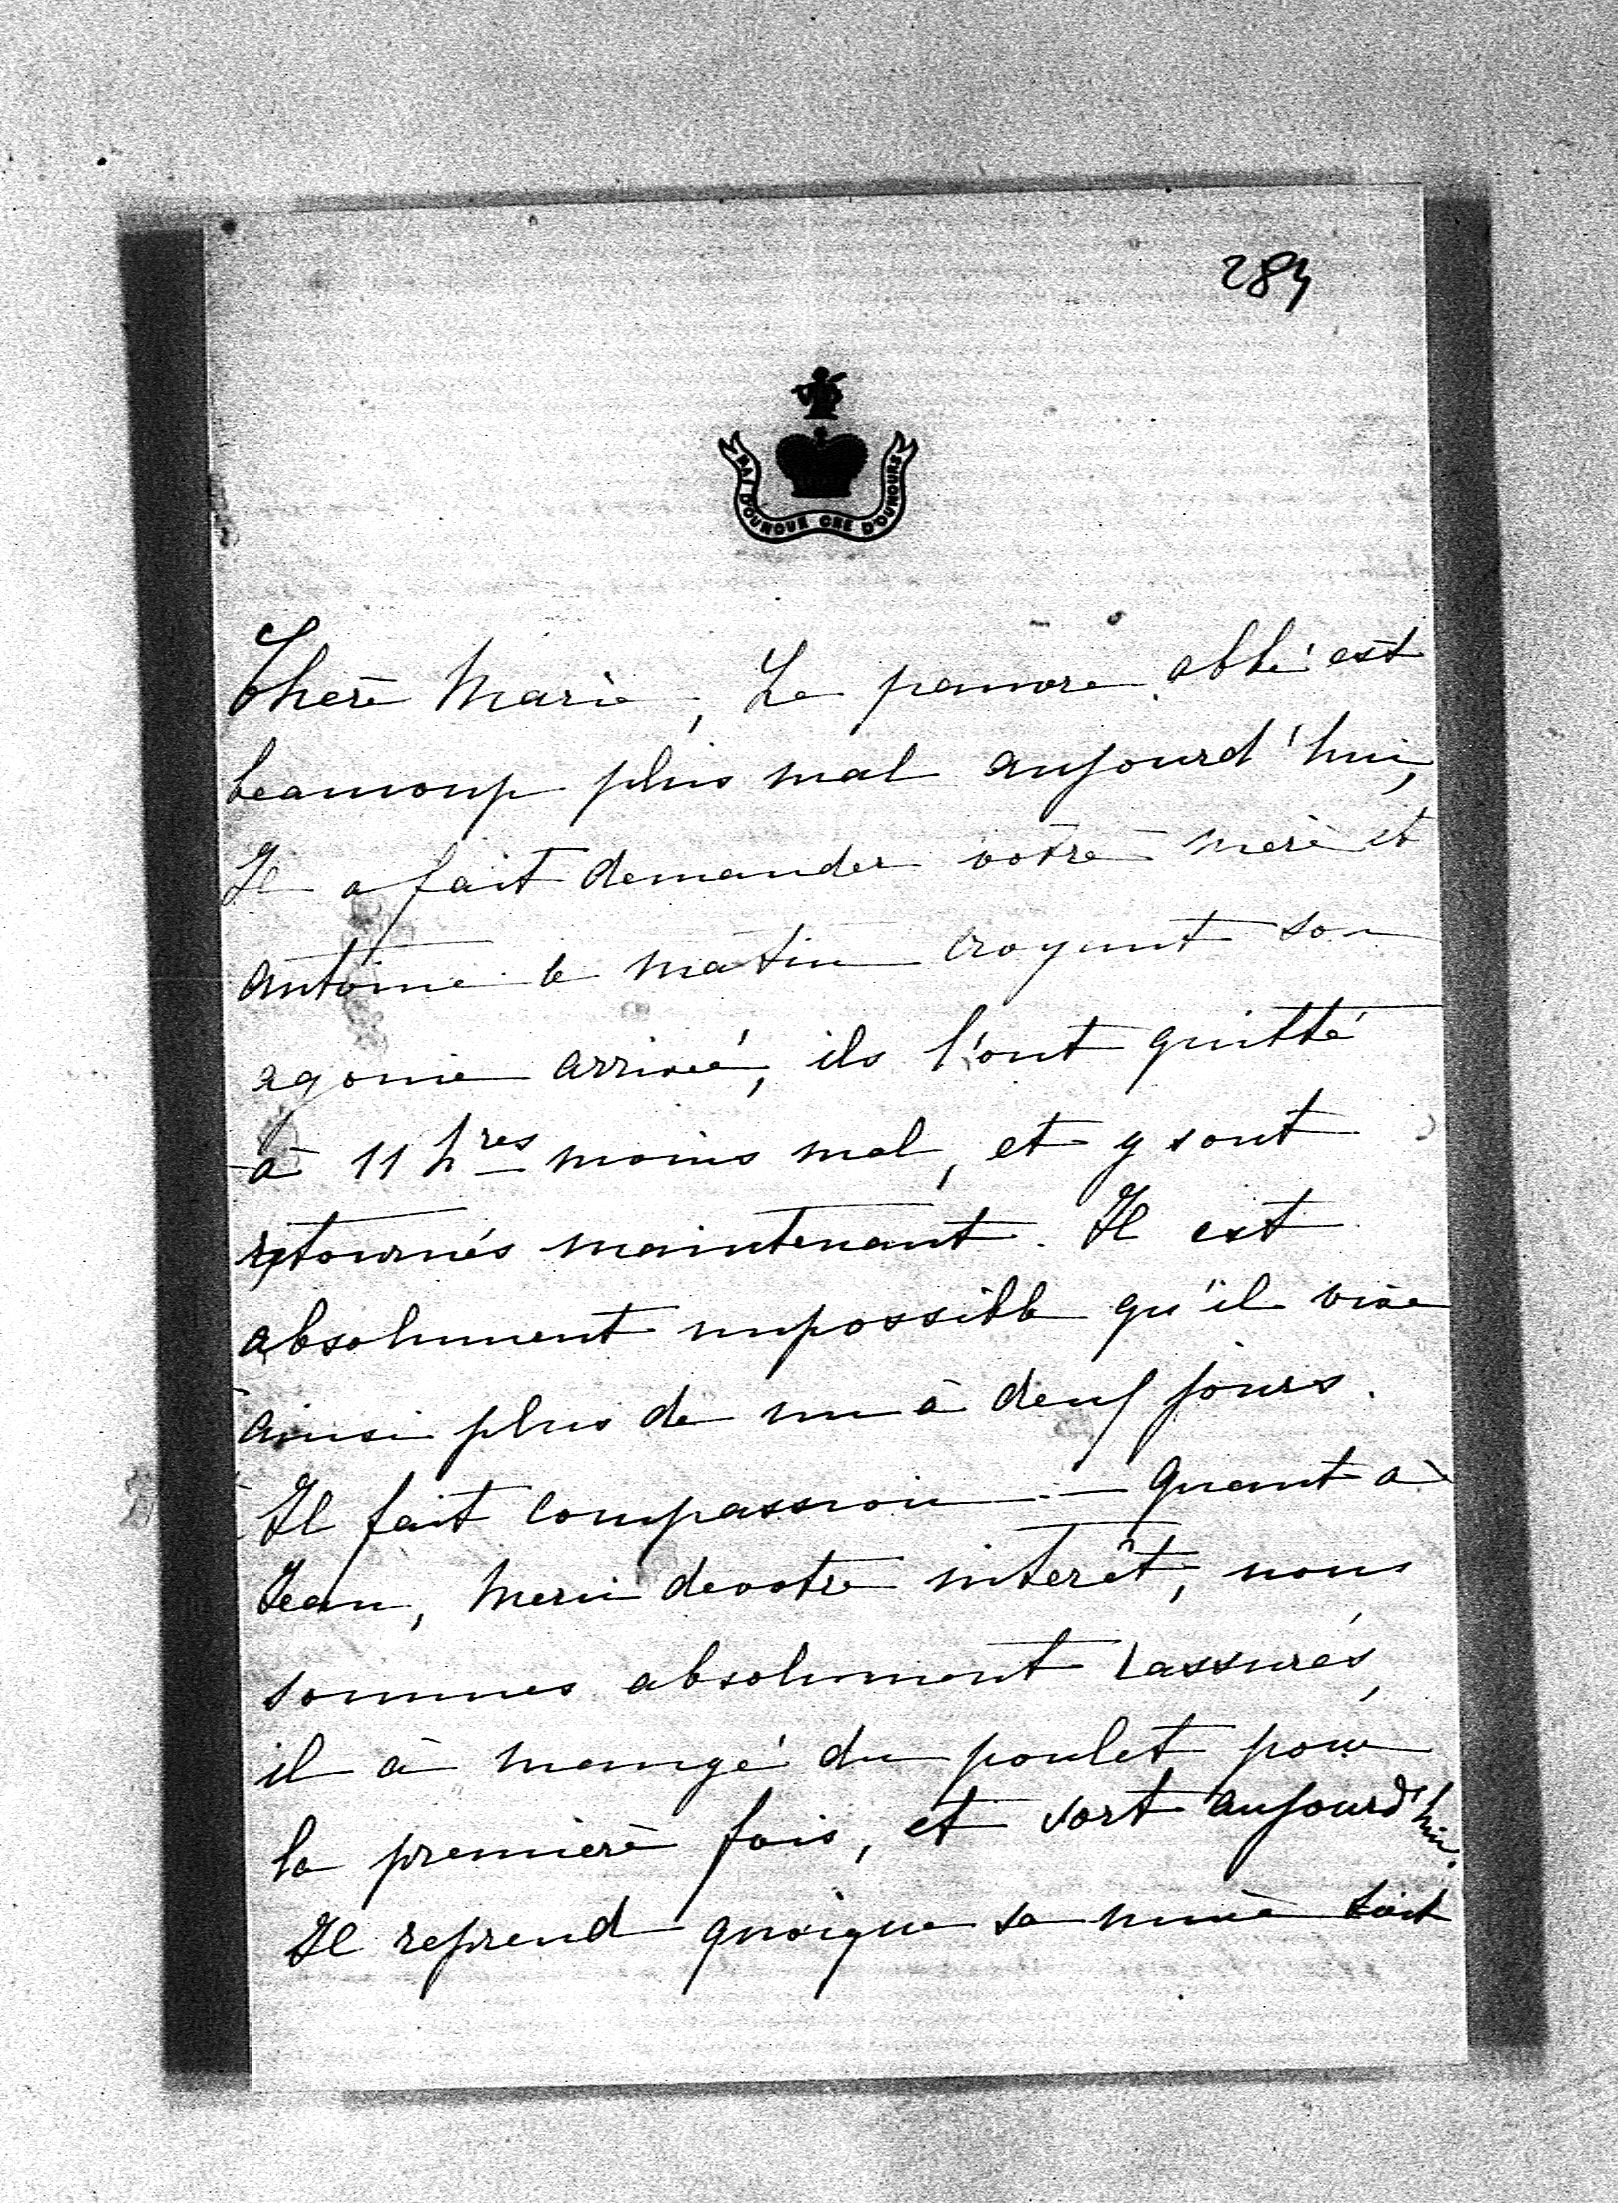 284
PAÏ D'OUNOUR CRE D'OUNOURS
Chère Marie, Le pauvre abbé est
beaucoup plus mal aujourd'hui,
Il a fait demander votre mère et
Antoine le matin croyant son
agonie arrivée, ils l'ont quitté
à 11 hres moins mal, et y sont
retournés maintenant. Il est
absolument impossible qu'il vive
ainsi plus de un à deux jours.
Il fait compassion — quant à
Jean, merci de votre intérêt, nous
sommes absolument rassurés,
il à mangé du poulet pour
la première fois, et sort aujourd'hui.
Il reprend quoique sa mine soit